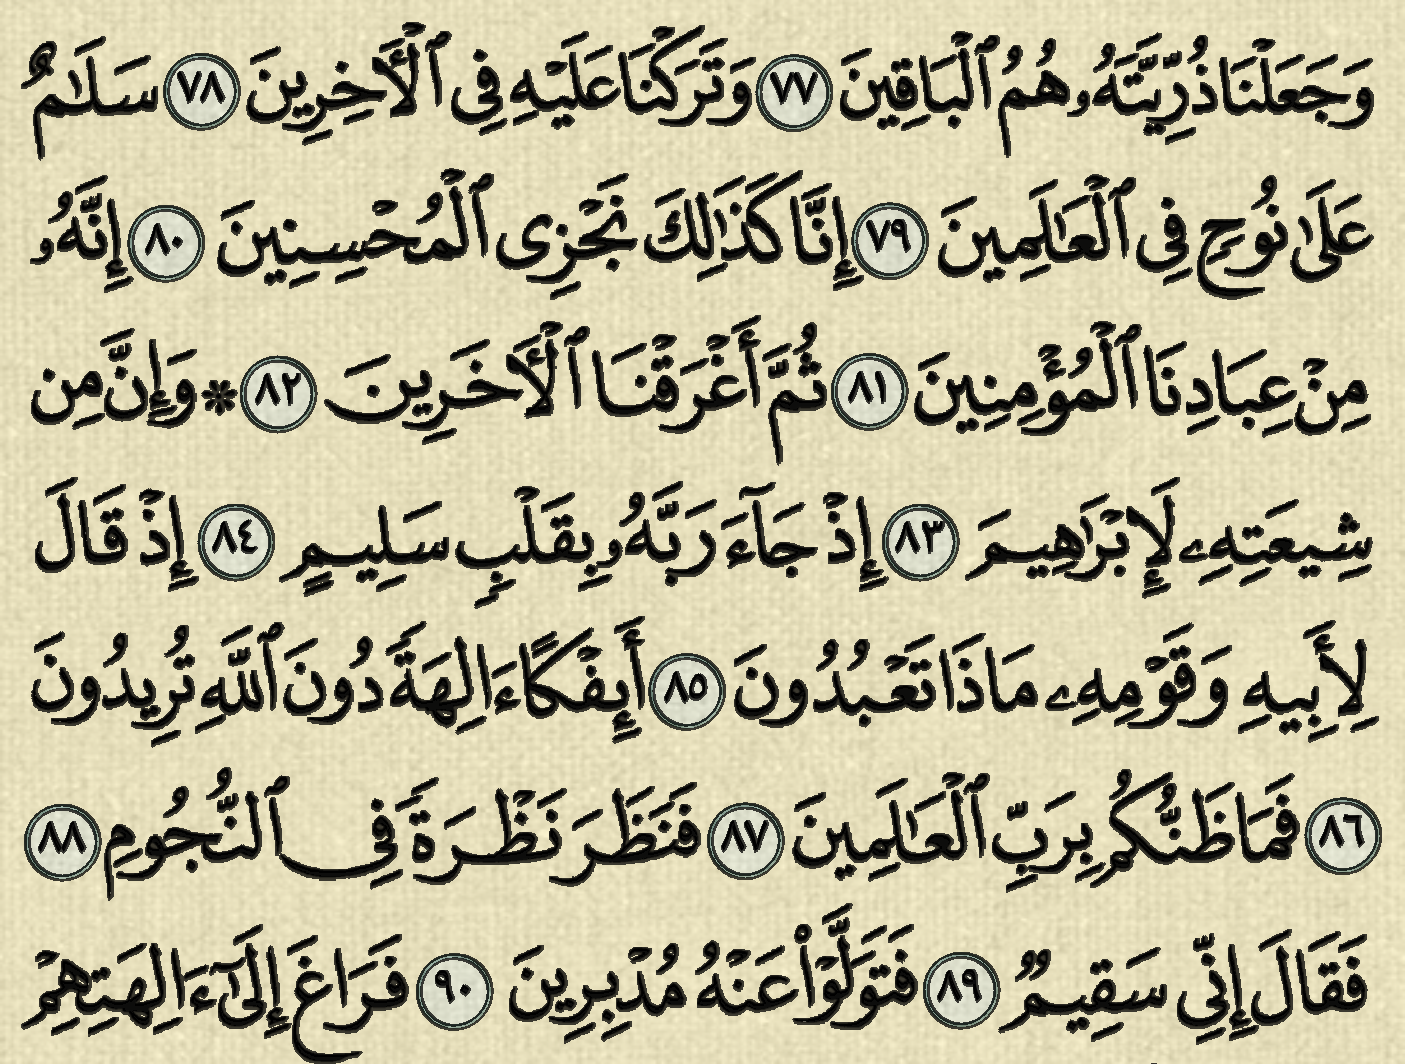 وَجَعَلْنَا ذُرِّيَّتَهُۥ هُمُ ٱلْبَاقِينَ ٧٧ وَتَرَكْنَا عَلَيْهِ فِى ٱلْأَخِرِينَ ٧٨ سَلَـٰمٌ
عَلَىٰ نُوحٍ فِى ٱلْعَـٰلَمِينَ ٧٩ إِنَّا كَذَٰلِكَ نَجْزِى ٱلْمُحْسِنِينَ ٨٠ إِنَّهُۥ
مِنْ عِبَادِنَا ٱلْمُؤْمِنِينَ ٨١ ثُمَّ أَغْرَقْنَا ٱلْأَخَرِينَ ٨٢ ۞ وَإِنَّ مِن
شِيعَتِهِۦ لَإِبْرَٰهِيمَ ٨٣ إِذْ جَآءَ رَبَّهُۥ بِقَلْبٍ سَلِيمٍ ٨٤ إِذْ قَالَ
لِأَبِيهِ وَقَوْمِهِۦ مَاذَا تَعْبُدُونَ ٨٥ أَئِفْكًا ءَالِهَةً دُونَ ٱللَّهِ تُرِيدُونَ
٨٦ فَمَا ظَنُّكُم بِرَبِّ ٱلْعَـٰلَمِينَ ٨٧ فَنَظَرَ نَظْرَةً فِى ٱلنُّجُومِ ٨٨
فَقَالَ إِنِّى سَقِيمٌ ٨٩ فَتَوَلَّوْا۟ عَنْهُ مُدْبِرِينَ ٩٠ فَرَاغَ إِلَىٰٓ ءَالِهَتِهِمْ